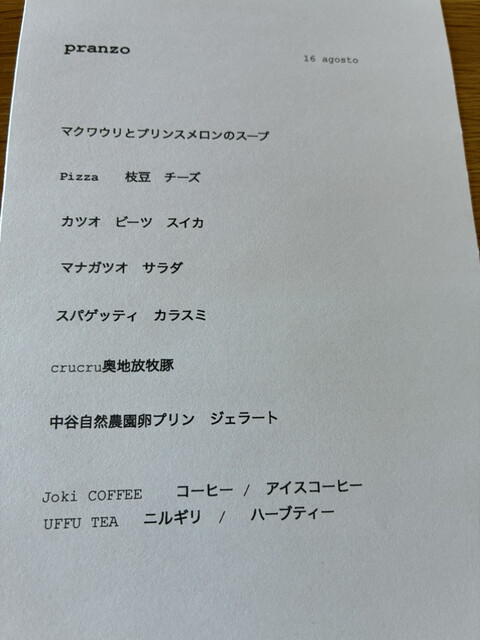 pranzo
16 agosto
マクワウリとプリンスメロンのスープ
Pizza 枝豆 チーズ
カツオ ビーツ スイカ
マナガツオ サラダ
スパゲッティ カラスミ
crucru奥地放牧豚
中谷自然農園卵プリン ジェラート
Joki COFFEE コーヒー / アイスコーヒー
UFFU TEA ニルギリ / ハーブティー